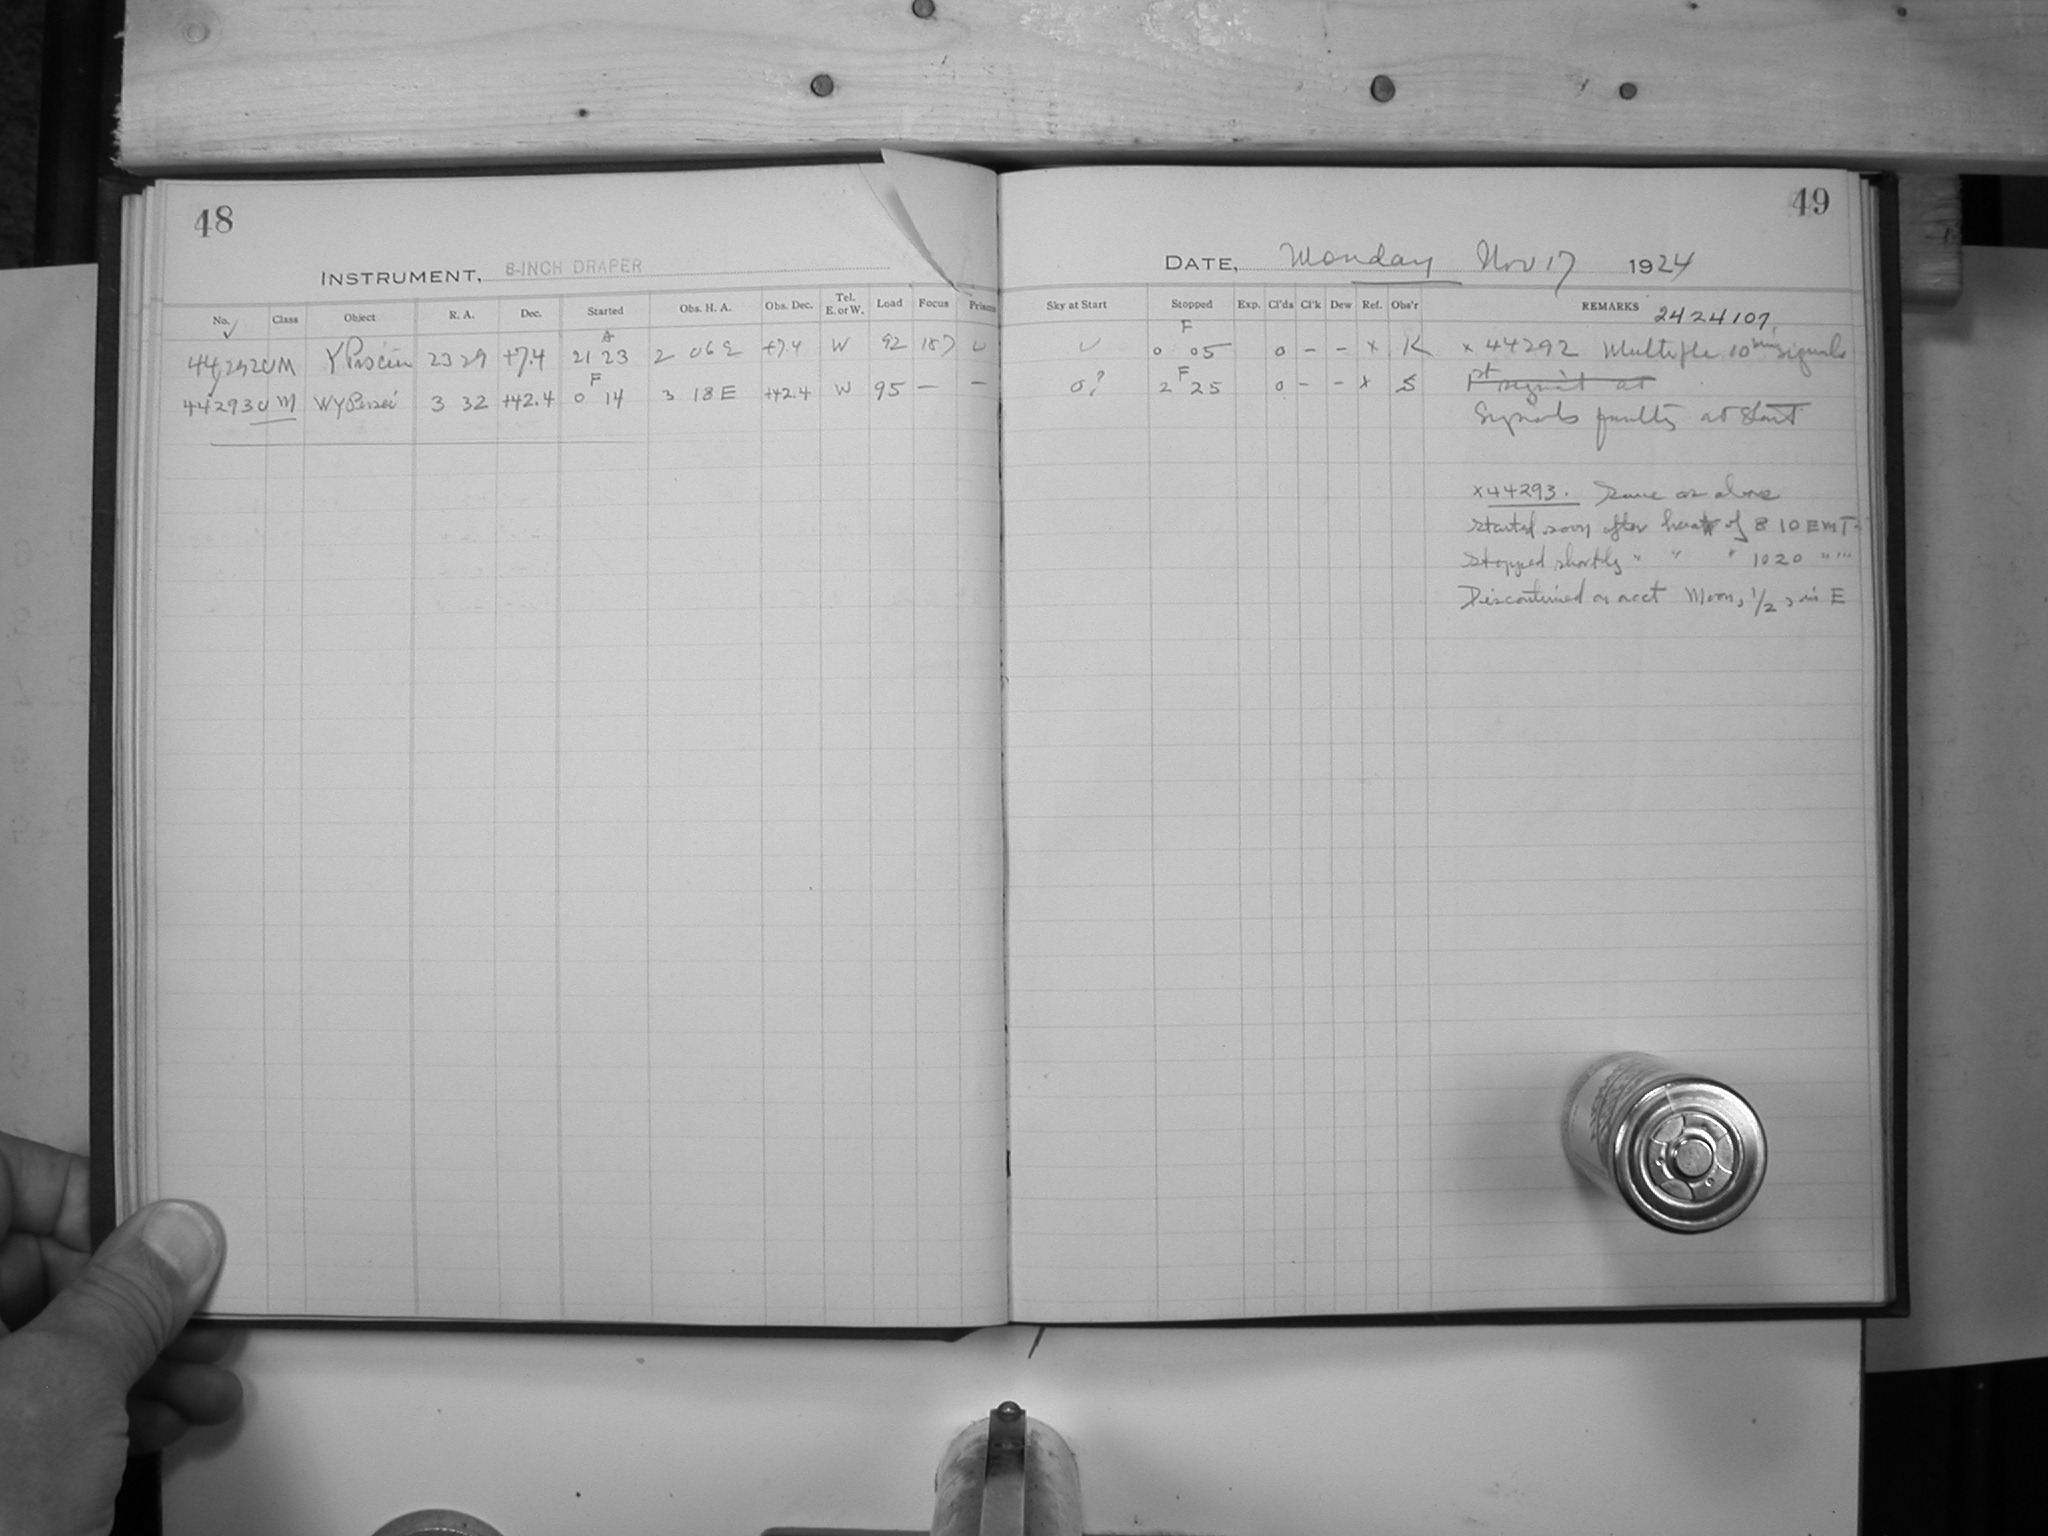 48
INSTRUMENT, 8-INCH DRAPER
No. Class Object R. A. Dec. Started Obs. H. A. Obs. Dec. Tel. E. or W. Load Focus Prisms
44292 M Y Piscium 23 29 +7.4 A 21 23 2 06 E +7.4 W 92 187
44293 M WY Persei 3 32 +42.4 F 0 14 3 18 E +42.4 W 95 — —
49
DATE, Monday Nov 17 1924
Sky at Start Stopped Exp. Cl'ds Cl'k Dew Ref. Obs'r REMARKS 2424107
F 0 05 0 – – x K x 44292 Multiple 10 min signals
0? F 2 25 0 – – x S 1st signal at
Signals faulty at Start
x44293. Same as above
started soon after heat of 8 10 EMT
Stopped shortly " " " 1020 " " "
Discontinued on acct Moon, 1/2 in E